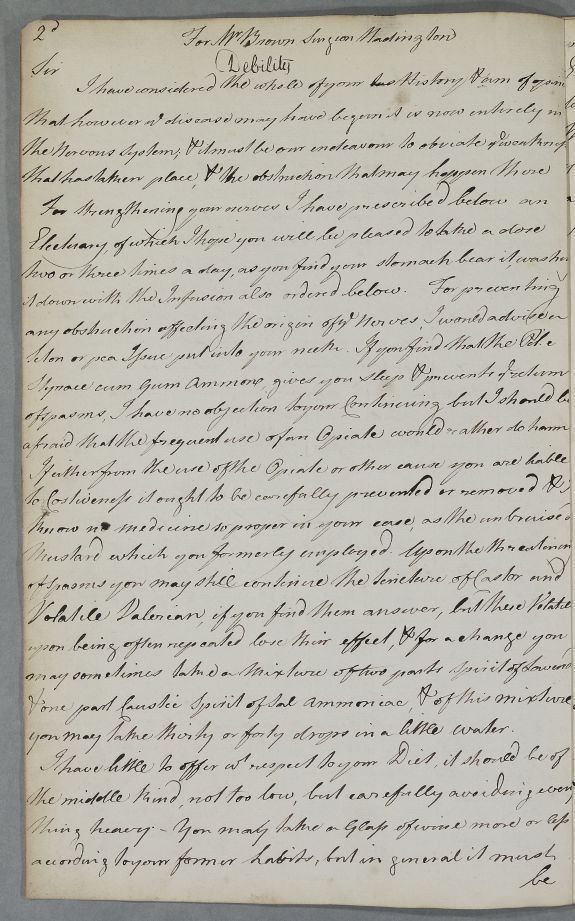 2d
For Mr Brown Surgeon Hadington
Debility
Sir
I have considered the whole of your History & am of opin
that however ye disease may have begun it is now entirely in
the Nervous System; & it must be our endeavour to obviate ye weakness
that has taken place, & the obstruction that may happen there
For strengthening your nerves I have prescribed below an
Electuary, of which I hope you will be pleased to take a dose
two or three times a day, as you find your stomach bear it, washing
it down with the Infusion also ordered below. For preventing
any obstruction affecting the origin of ye Nerves, I would advise a
Seton or pea Issue put into your neck. If you find that the Pil. e
Styrace cum Gum Ammon, gives you Sleep & prevents ye return
of spasms, I have no objection to your Continuing but I should be
afraid that the frequent use of an Opiate would rather do harm
If either from the use of the Opiate or other cause you are liable
to Costiveness it ought to be carefully prevented or removed & I
know no medicine so proper in your case, as the unbruised
Mustard which you formerly employed. Upon the threatening
of Spasms you may still continue the tincture of Castor and
Volatile Valerian, if you find them answer, but these Volatile
upon being often repeated lose their effect, & for a change you
may sometimes take a Mixture of two parts Spirit of Lavend
& one part Caustic Spirit of Sal Ammoniac, & of this mixture
you may take thirty or forty drops in a little water.
I have little to offer wt respect to your Diet, it should be of
the middle kind, not too low, but carefully avoiding every
thing heavy - You may take a Glass of wine more or less
according to your former habits, but in general it must
be